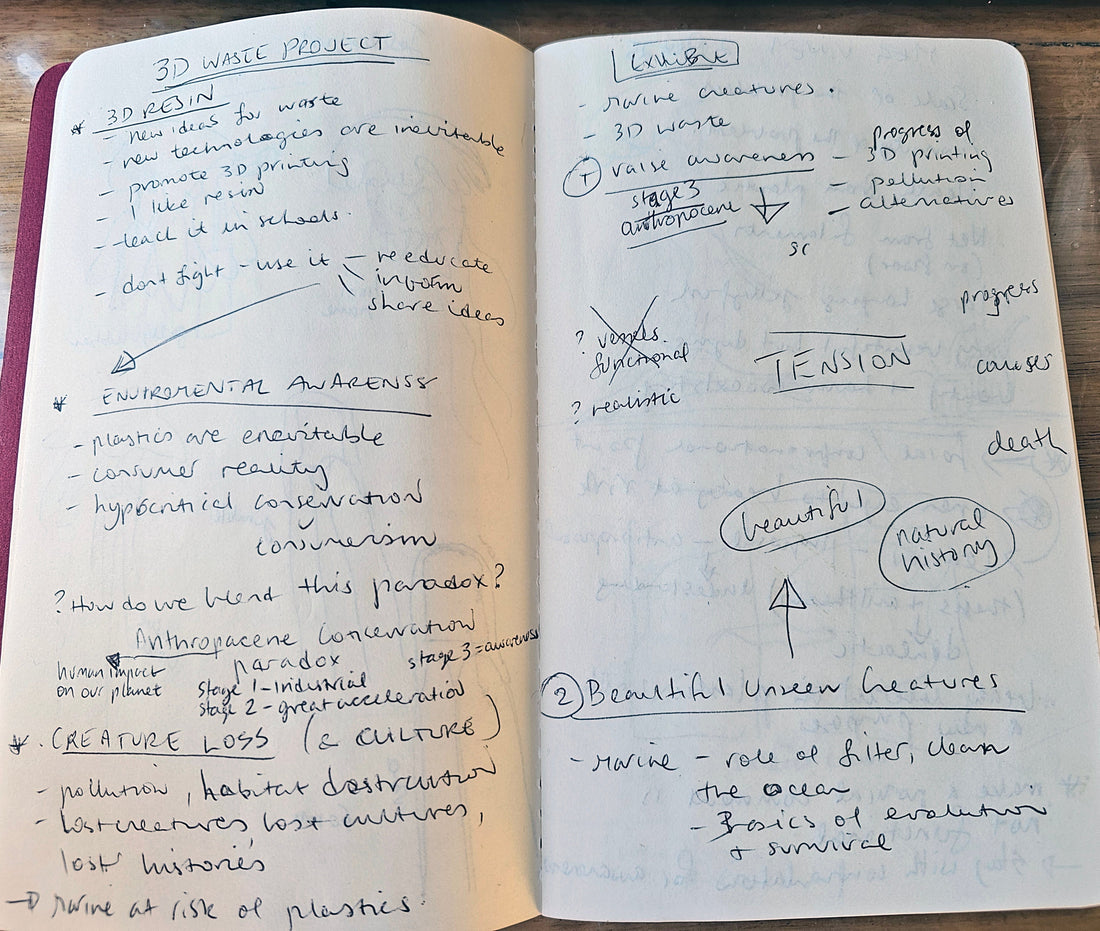 3D WASTE PROJECT
* 3D RESIN
- new ideas for waste
- new technologies are inevitable
- promote 3D printing
- I like resin
- teach it in schools.
- dont fight - use it - reeducate
inform
share ideas
* ENVIROMENTAL AWARENSS
- plastics are enevitable
- consumer reality
- hypocritical conservation
consumerism
? How do we blend this paradox?
Anthropacene Conservation
paradox
stage 3 = awareness
human impact
on our planet
stage 1 - industrial
stage 2 - great acceleration
* . CREATURE LOSS (& CULTURE)
- pollution, habitat destruction
- Lost creatures lost cultures,
lost histories
→ marine at risk of plastics.
EXHIBIT
- marine creatures.
- 3D waste
1 raise awareness - progress of
3D printing
- pollution
- alternatives
stage 3
anthropocene
sc
progress
? vessels.
functional
TENSION
causes
? realistic
death
beautiful
natural
history
2 Beautiful Unseen Creatures
- marine - role of filter, clean
the ocean
- Basics of evolution
+ survival